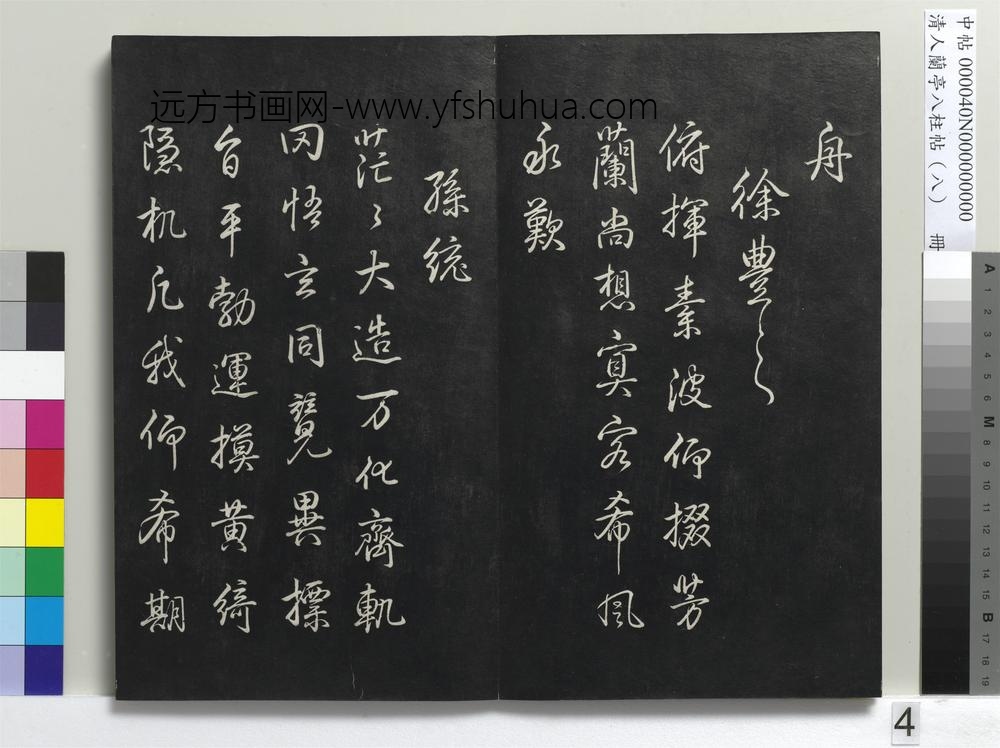 远方书画网-www.yfshuhua.com
舟
徐豊之
俯揮素波仰掇芳
蘭尚想寞客希風
永歎
孫統
茫〻大造万化齊軌
罔悟玄同競異摽
旨平勃運摸黄綺
隱机凡我仰希期
中帖 000040N000000000
清人蘭亭八柱帖(八) 冊
A 1 2 3 4 5 6 M 8 9 10 11 12 13 14 15 B 17 18 19
4